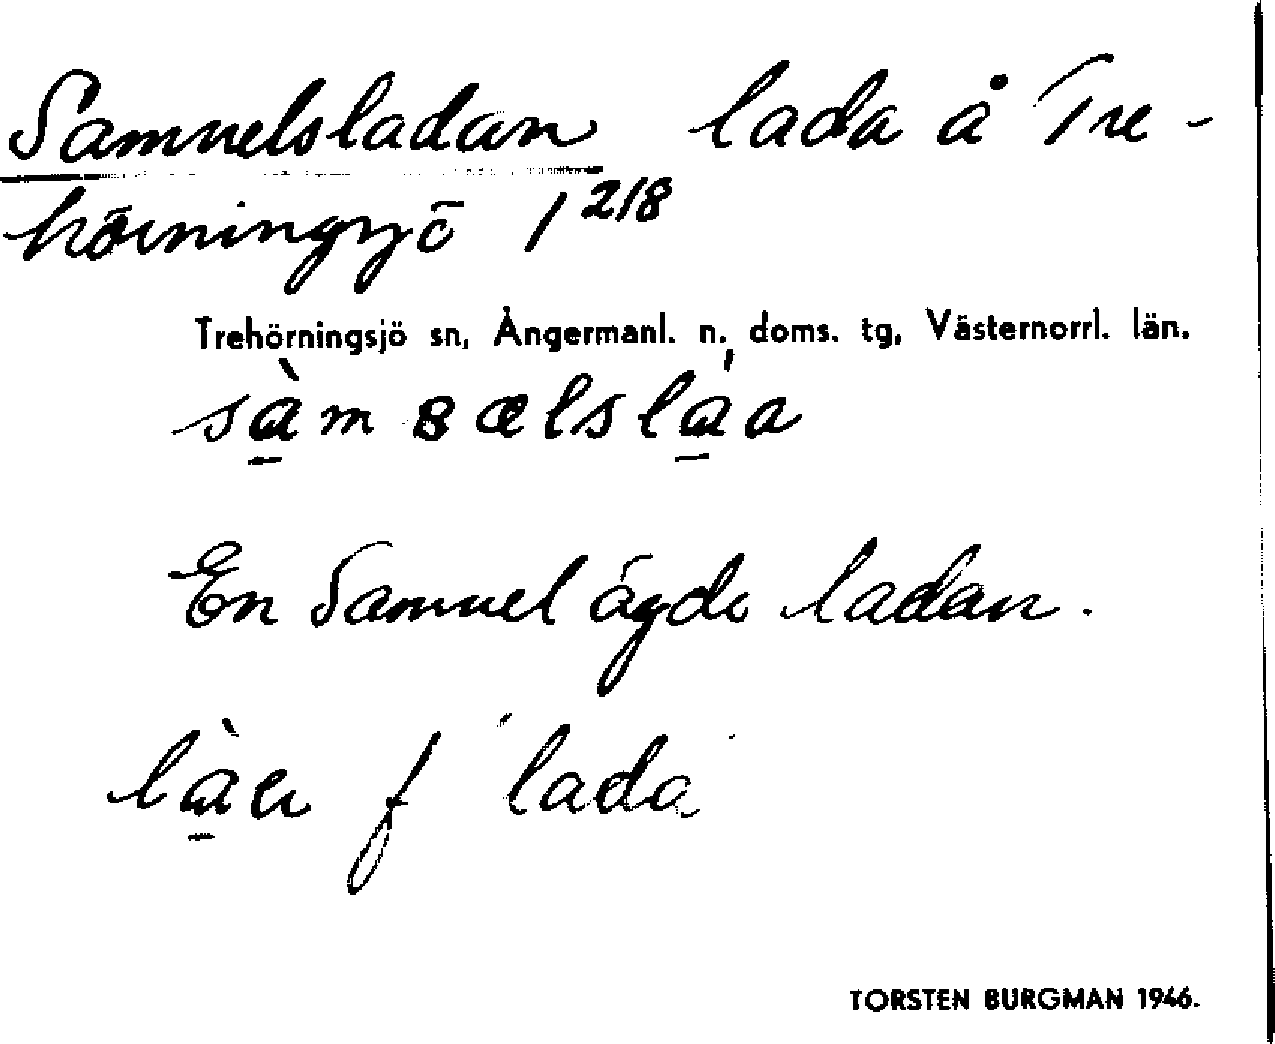 Samuelsladan lada å Tre-
hörningsjö 1 218
Trehörningsjö sn, Ångermanl. n. doms. tg, Västernorrl. län.
sàmɞælsláa
En Samuel ägde ladan.
làa f lada
TORSTEN BURGMAN 1946.